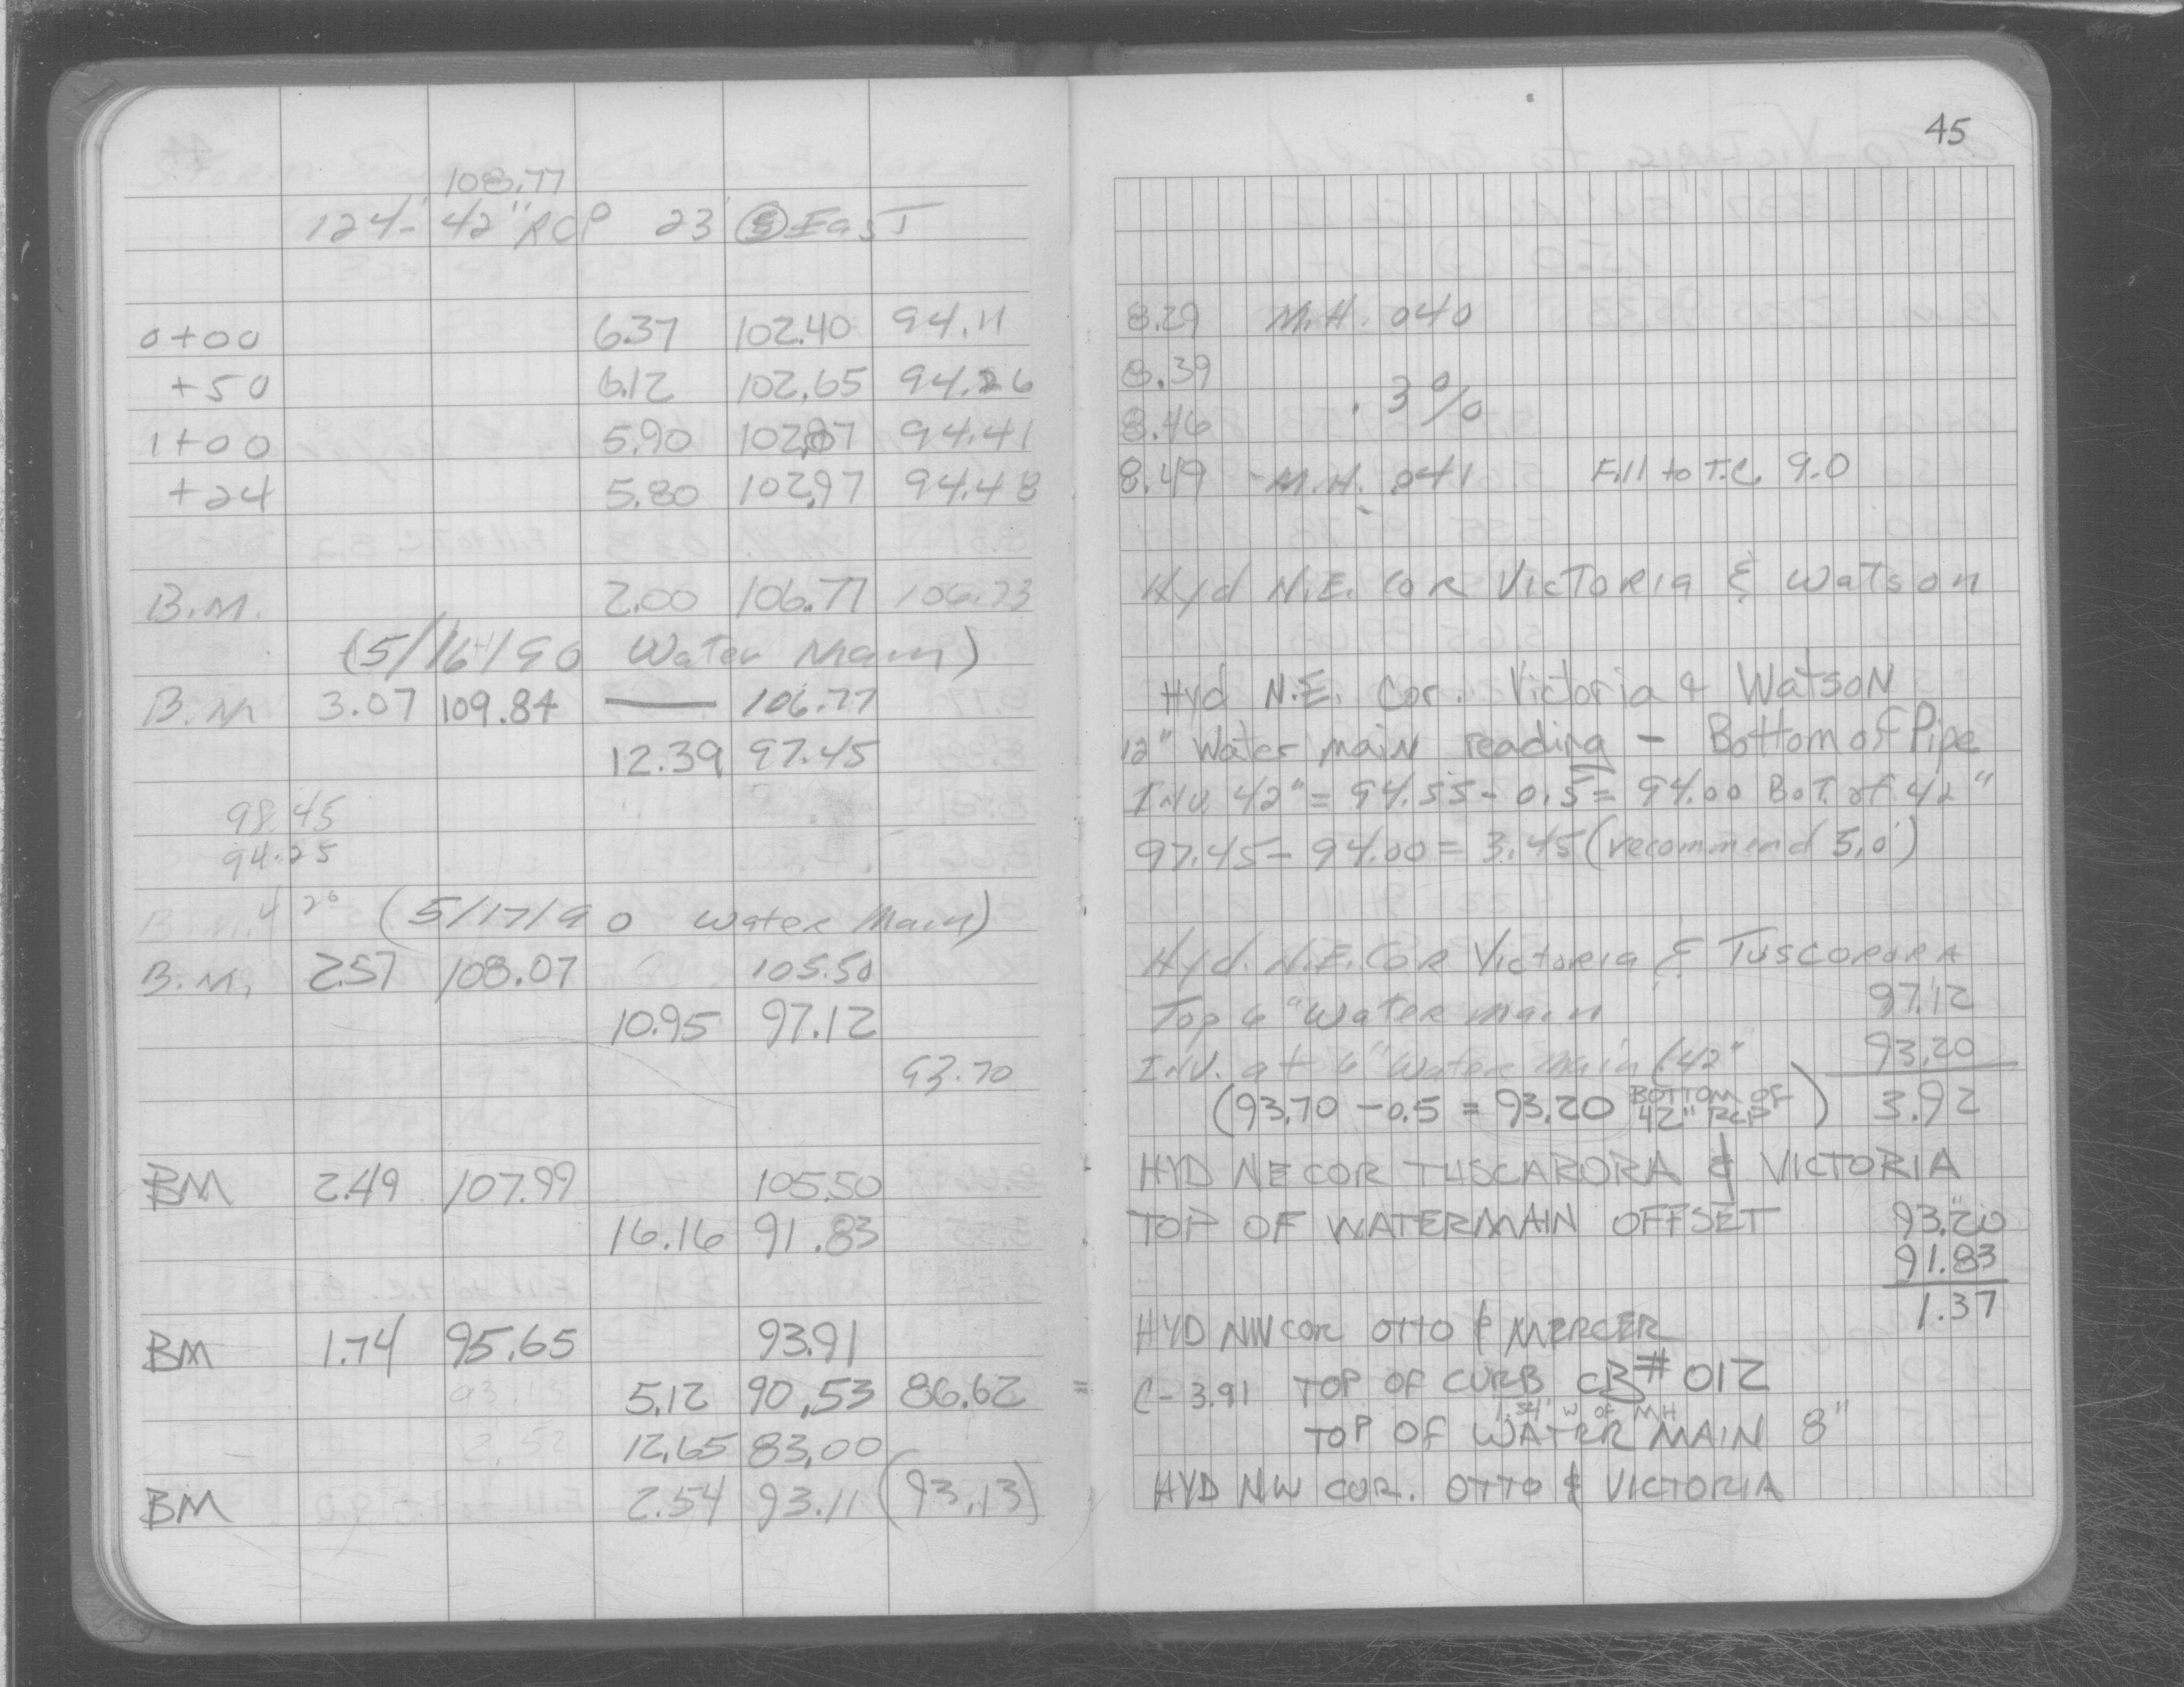 108.77
124'- 42" RCP 23' (S) East
0+00 6.37 102.40 94.11
+50 6.12 102.65 94.26
1+00 5.90 102.87 94.41
+24 5.80 102.97 94.48
B.M. 2.00 106.77 106.73
(5/16/90 Water Main)
B.M 3.07 109.84 — 106.77
12.39 97.45
98.45
94.25
B.M. 4 20 (5/17/90 Water Main)
B.M. 2.57 108.07 105.50
10.95 97.12
93.70
BM 2.49 107.99 105.50
16.16 91.83
BM 1.74 95.65 93.91
93.13 5.12 90.53 86.62 =
2.52 12.65 83.00
BM 2.54 93.11 (93.13)
45
8.29 M.H. 040
8.39
.3%
8.46
8.49 - M.H. 041 Fill to T.C. 9.0
Hyd N.E. COR VICTORIA & Watson
Hyd N.E. Cor. Victoria & Watson
12" Water main reading - Bottom of Pipe
INV. 42" = 94.55 - 0.5 = 94.00 BOT. of 42"
97.45 - 94.00 = 3.45 (recommend 5.0')
Hyd. N.E. COR Victoria & TUSCORORA
Top 6" Water main 97.12
INV. at 6" Water Main (42" 93.20
(93.70 - 0.5 = 93.20 BOTTOM OF 42" RCP) 3.92
HYD NE COR TUSCARORA & VICTORIA
TOP OF WATERMAIN OFFSET 93.20
91.83
1.37
HYD NW COR OTTO & MERCER
C- 3.91 TOP OF CURB CB# 012
1.54' W OF MH
TOP OF WATER MAIN 8"
HYD NW COR. OTTO & VICTORIA